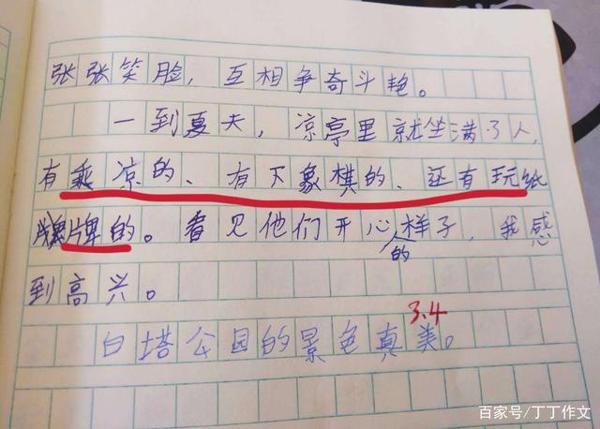 张张笑脸，互相争奇斗艳。
一到夏天，凉亭里就坐满了人，
有乘凉的、有下象棋的、还有玩纸
牌的。看见他们开心的样子，我感
到高兴。
3.4
白塔公园的景色真美。
百家号/丁丁作文